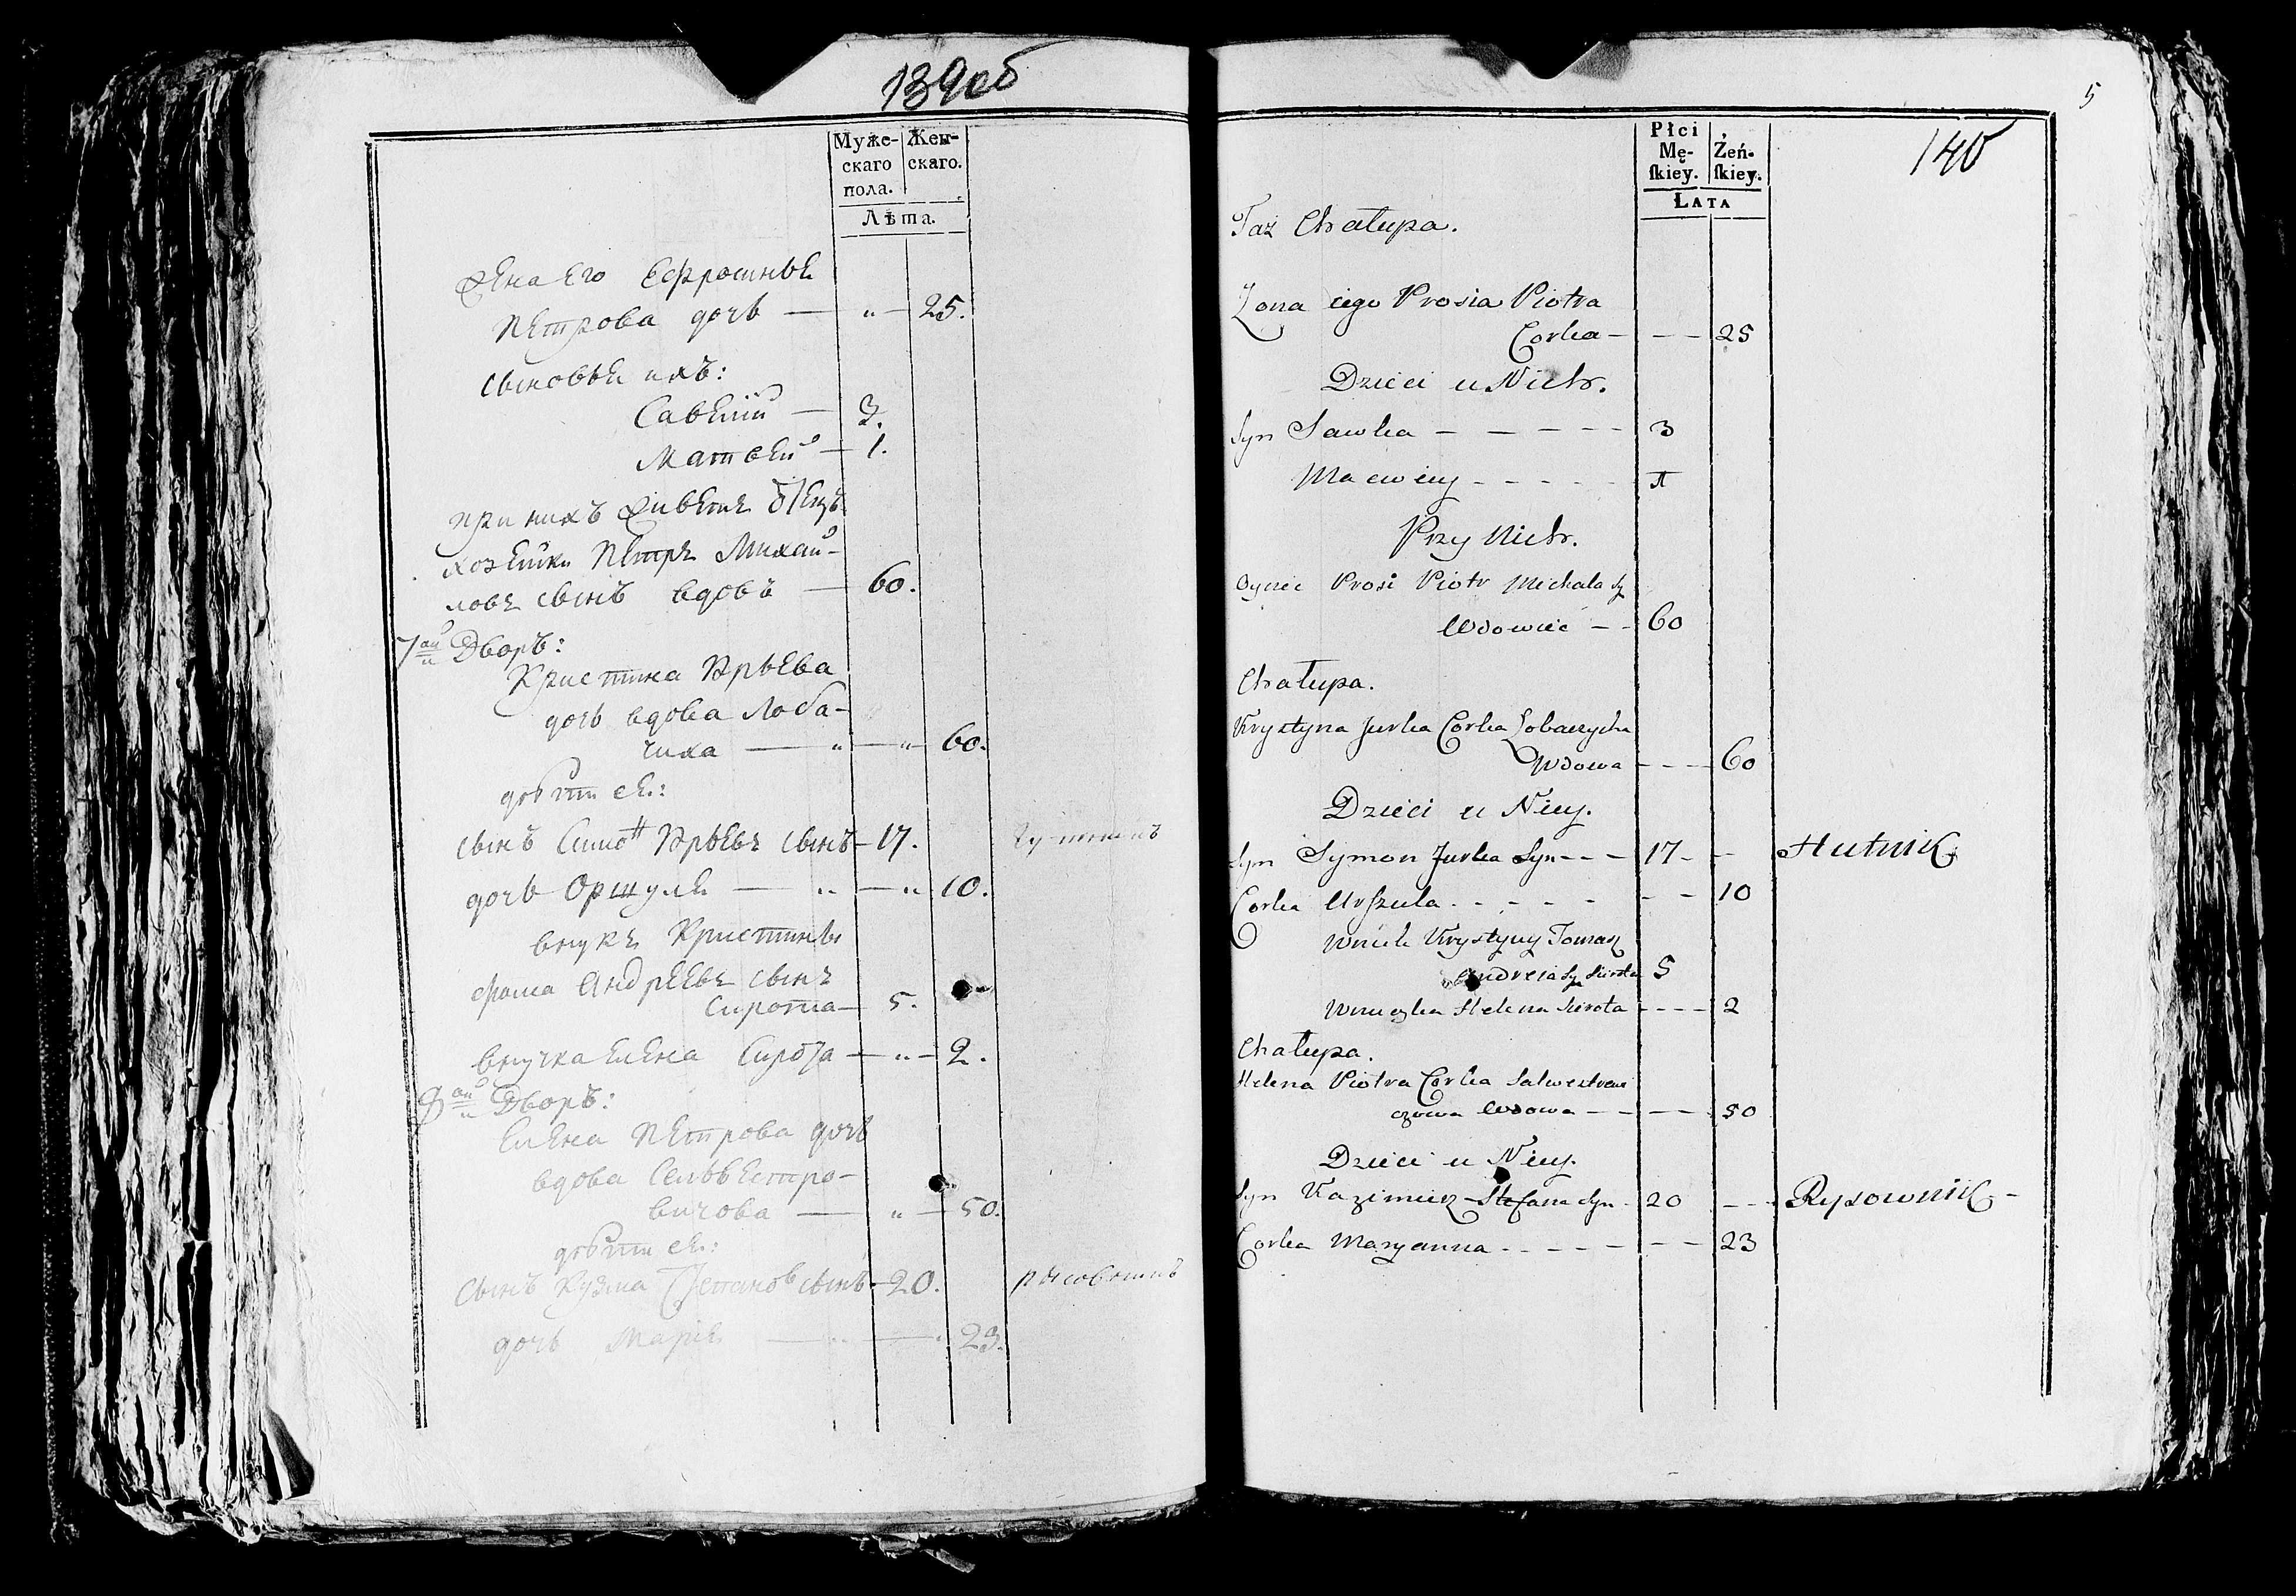 139об
Муже-
скаго
пола.
Жен-
скаго.
Лѣта.
жена его Ефросинья
Петрова дочь — " — 25.
сыновья ихъ:
Савелій — 3.
Матвей — 1.
при нихъ живетъ отецъ
хозяйки Петръ Михай-
ловъ сынъ вдовъ — 60.
7ой Дворъ:
Кристина Юрьева
дочь вдова Лоба-
чиха — " — " 60.
дети ея:
сынъ Симонъ Юрьевъ сынъ — 17.
дочь Оршуля — " — " 10.
внукъ Кристины
Фома Андреевъ сынъ
Сирота — 5.
внучка Елена Сирота — " — 2.
8ой Дворъ:
Елена Петрова дочь
вдова Сельвестро-
вичова — " — 50.
дети ея:
сынъ Кузма Степановъ сынъ — 20. рысовникъ
дочь Марія — " — " 23.
5
140
Płci
Mę-
ſkiey.
Żeń-
ſkiey.
Łata
Taż Chałupa.
Zona iego Prosia Piotra
Corka — — — 25
Dzieci u Nich.
Syn Sawka — — — — — 3
Maciwiey - - - - - 1
Przy Nich.
Oyciec Prosi Piotr Michała Sy
Wdowiec — - 60
Chałupa.
Krystyna Jurka Corka Łobaczycha
Wdowa - - - - 60
Dzieci u Niey.
Syn Symon Jurka Syn - - - 17 - - Hutnik
Corka Urſzula - - - - - - - 10
Wnuk Krystyny Tomasz
Andreia Sy Sierota 5
Wnuczka Helena Sierota - - - - 2
Chałupa.
Helena Piotra Corka Salwestrowi
czowa Wdowa - - - - - 50
Dzieci u Niey.
Syn Kazimierz Stefana Syn - 20 - - - Rysownik -
Corka Maryanna - - - - - - - 23